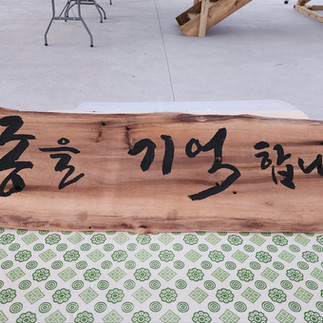 을 기억합니